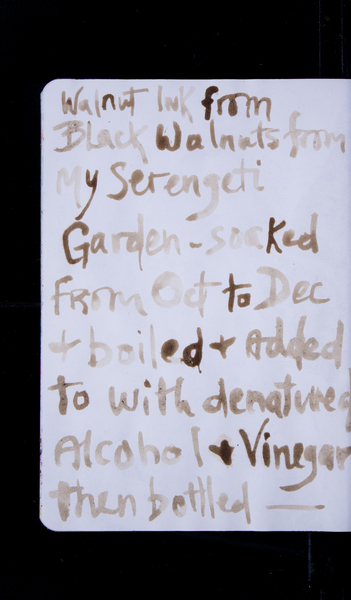 Walnut Ink from
Black Walnuts from
My Serengeti
Garden - soaked
From Oct to Dec
+ boiled + Added
to with denatured
Alcohol + Vinegar
then bottled —